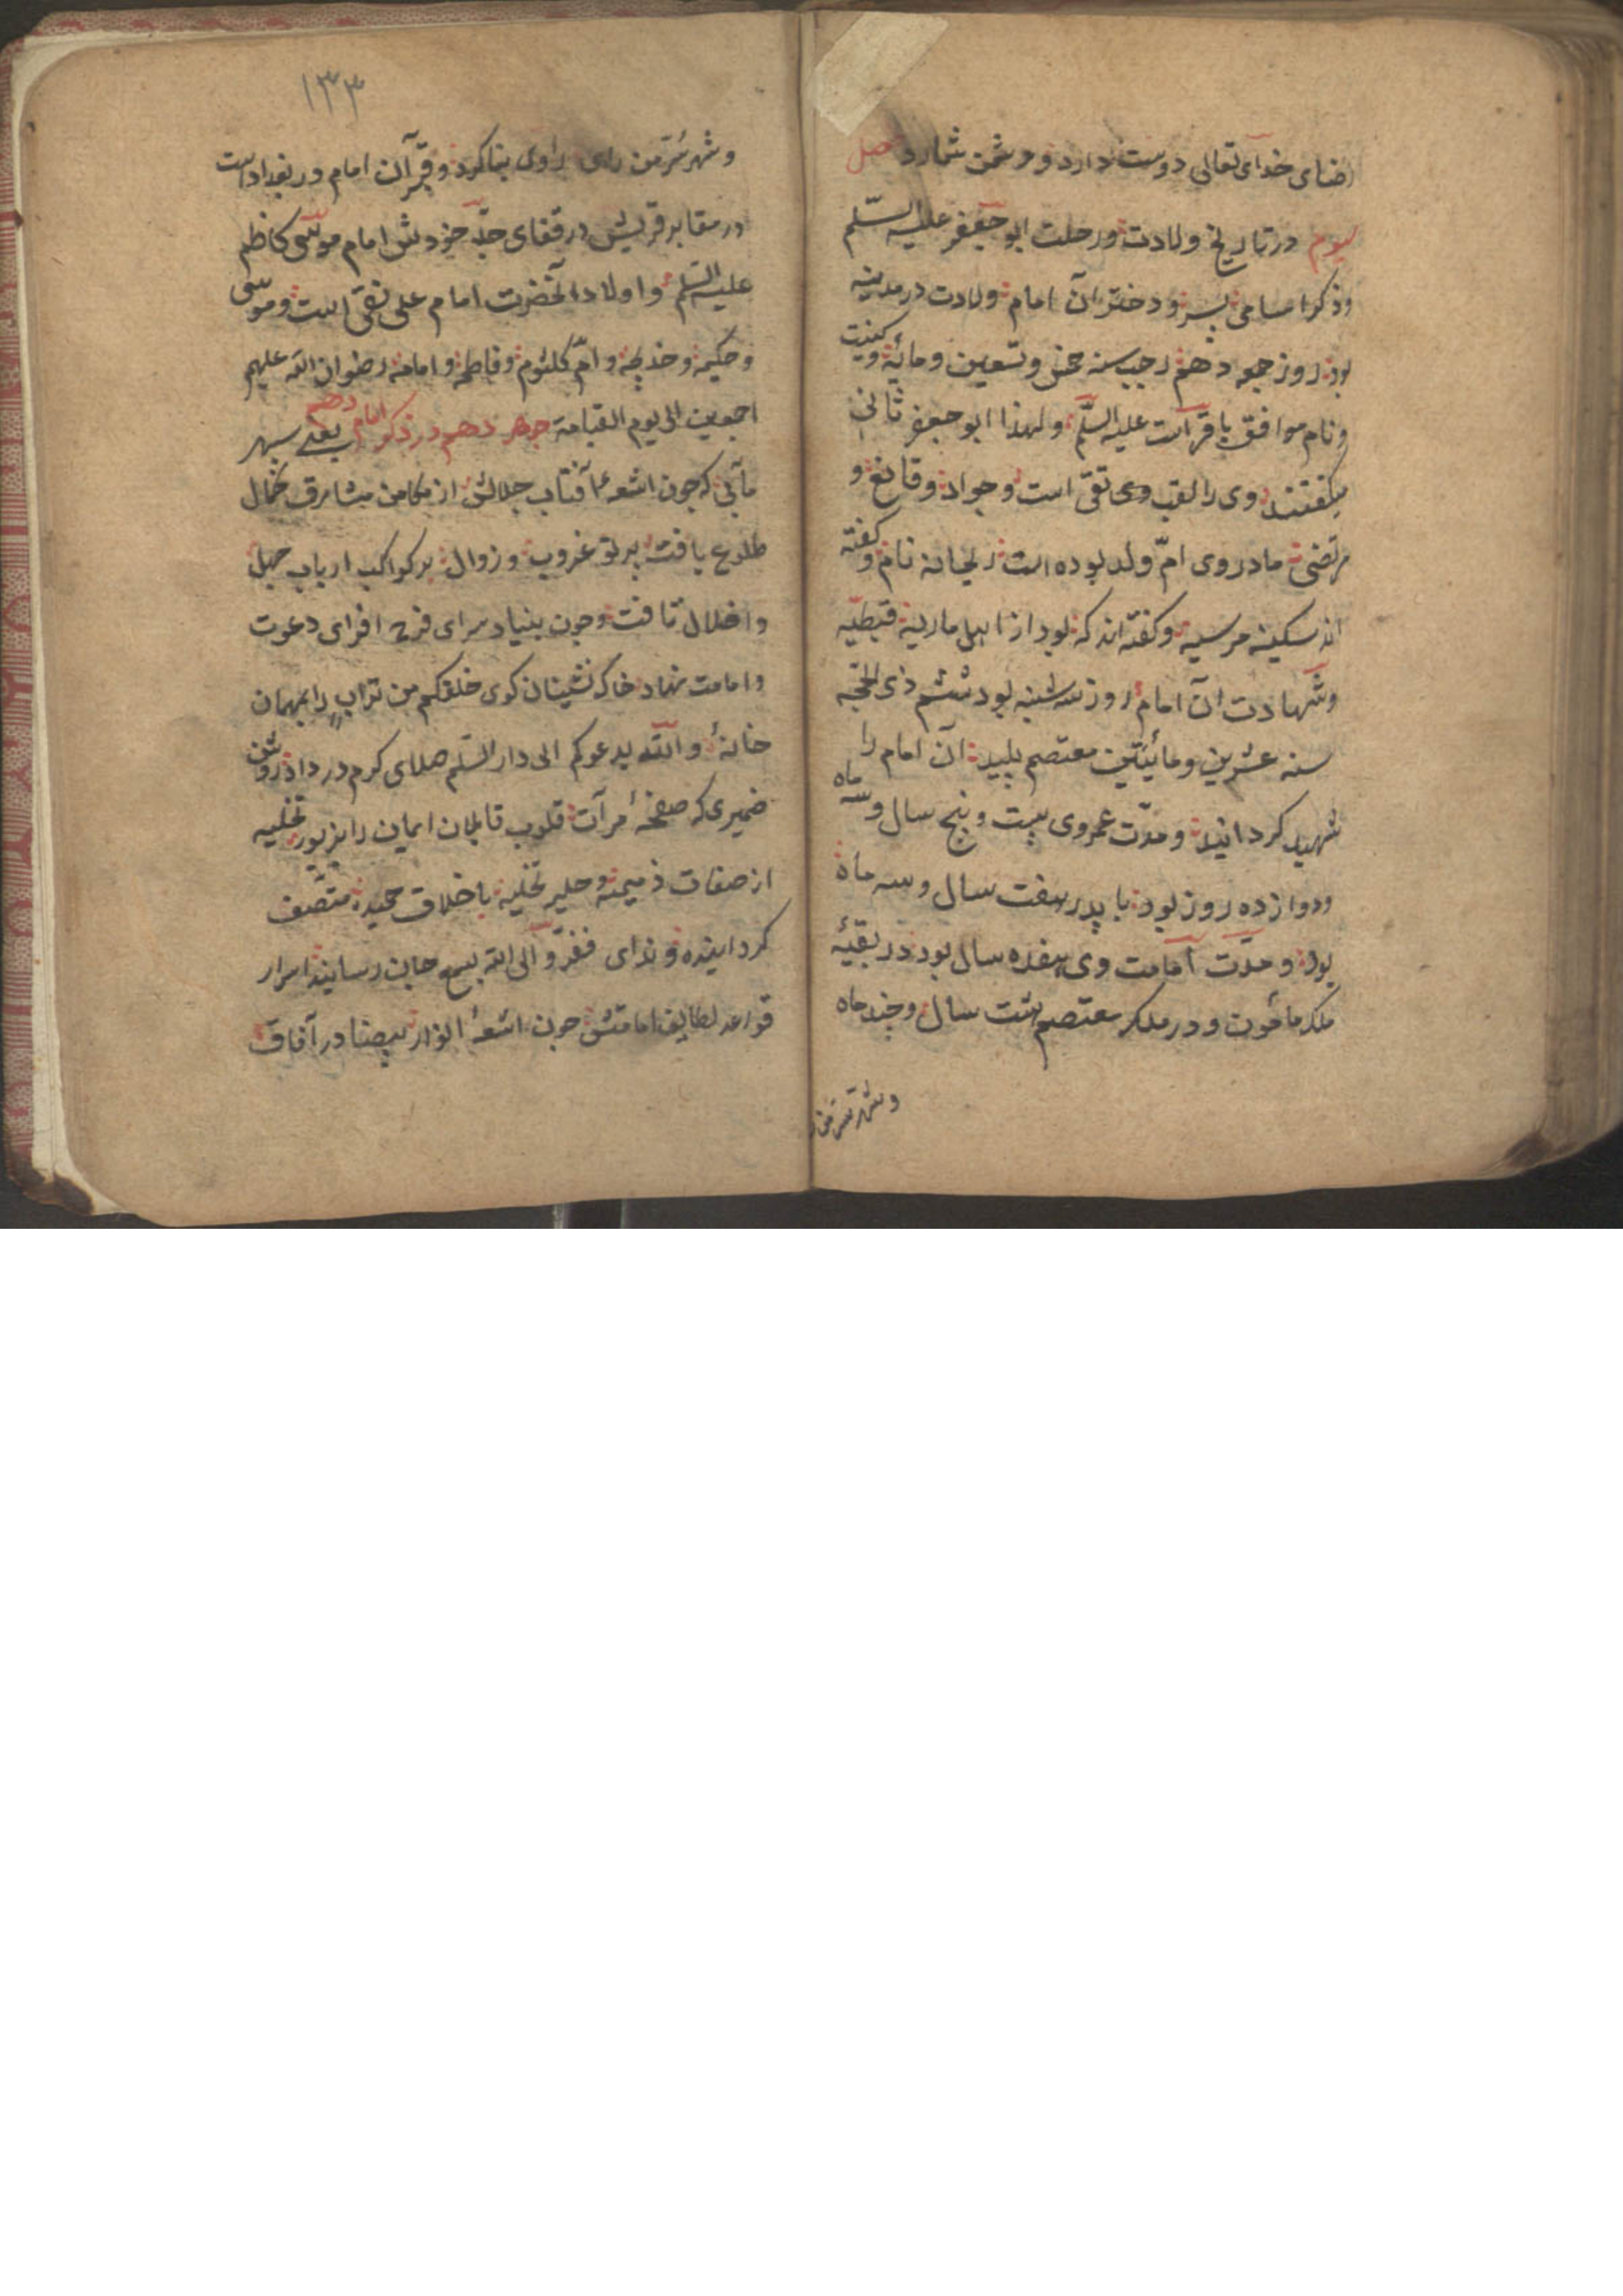 رضای خدای تعالی دوست دارد و دشمن شمارد فصل
سیوم در تاریخ ولادت و رحلت ابو جعفر علیه السّلم
و ذکر اسامی پسر و دختر آن امام ولادت در مدینه
بود روز جمعه دهم رجب سنه خمس و تسعین و مائة و کنیت
و نام موافق باقر است علیه السّلم و لهذا ابو جعفر ثانی
میکفتند وی را لقب وی تقی است و جواد و قانع و
مرتضی مادر وی امّ ولد بوده است ریحانه نام و کفته
اند سکینه مرسیه و کفته اند که بود از اهل ماریه قبطیّه
و شهادت آن امام روز سه شنبه بود ششم ذی الحجّه
سنه عشرین و مأیتین معتصم پلید آن امام را
شهید کردانید و مدّت عمر وی بیست و پنج سال و سه ماه
و دوازده روز بود با پدر هفت سال و سه ماه
بود و مدّت امامت وی هفده سال بود در بقیّه
ملک مأمون و در ملک معتصم هشت سال و چند ماه
و شهر سرّ من
۱۳۳
و شهر سُرّ من رای را وی بنا کرد و قبر آن امام در بغداد است
در مقابر قریش در قفای جدّ خودش امام موسی کاظم
علیه السّلم و اولاد آنحضرت امام علی نقی است و موسی
و حکیمه و خدیجه و امّ کلثوم و فاطمه و امامه رضوان الله علیهم
اجمعین الی یوم القیامة جوهر دهم در ذکر امام دهم یعنی سپهر
مآبی که چون اشعهٔ آفتاب جلالش از مکامن مشارق کمال
طلوع یافت پرتو غروب و زوال بر کواکب ارباب جهل
و اضلال تافت و چون بنیاد سرای فرح افزای دعوت
و امامت نهاد خاک نشینان کوی خلقکم من تراب را بمهمان
خانهٔ والله یدعوکم الی دار السّلم صلای کرم در داد روشن
ضمیری که صفحهٔ مرآت قلوب قابلان ایمان را بزیور تخلیه
از صفات ذمیمه و حلیه تحلیه با خلاق حمیده متّصف
کردانیده و ندای ففرّوا الی الله بسمع جان رسانید اسرار
قواعد لطایف امامتش چون اشعهٔ انوار بیضا در آفاق